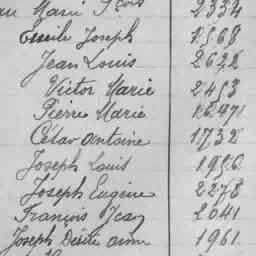 Marie 2334
Emile Joseph 1568
Jean Louis 2622
Victor Marie 2453
Pierre Marie 16.471
César Antoine 1732
Joseph Louis 1956
Joseph Eugène 2278
François Jean 2041
Joseph Désiré 1961